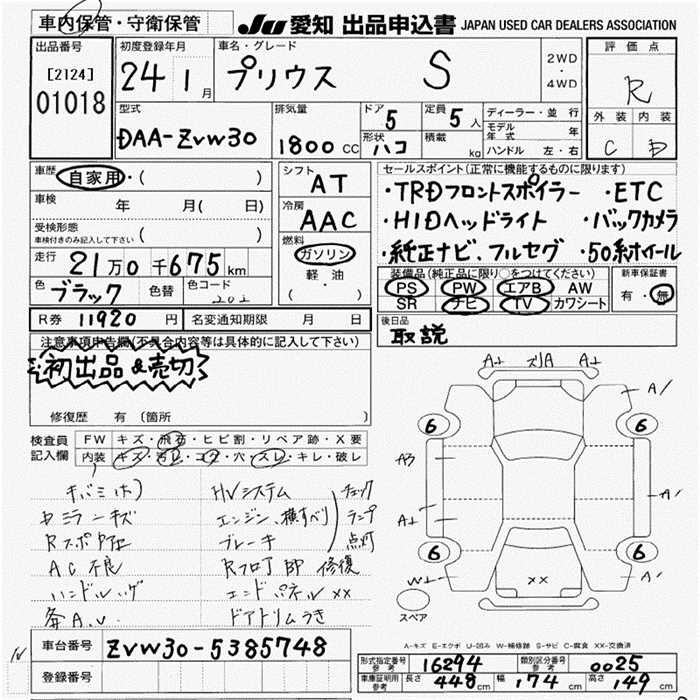 車内保管・守衛保管
JU 愛知 出品申込書 JAPAN USED CAR DEALERS ASSOCIATION
出品番号
[2124]
01018
初度登録年月
24 1 月
車名・グレード
プリウス S
2WD
・
4WD
評価点
R
外装 内装
C D
型式
DAA-ZVW30
排気量
1800 CC
ドア 5
形状 ハコ
定員 5 人
積載 kg
ディーラー・並行
モデル年式 年
ハンドル 左・右
車歴
自家用・( )
車検 年 月( 日)
受検形態
車検付きのみ記入して下さい ( )
走行
21万0千675km
色 ブラック
色替
色コード 202
シフト
AT
冷房
AAC
燃料
ガソリン
軽油
( ・ )
セールスポイント(正常に機能するものに限ります)
・TRDフロントスポイラー ・ETC
・HIDヘッドライト ・バックカメラ
・純正ナビ、フルセグ ・50系ホイール
装備品(純正品に限り○をつけてください)
PS PW エアB AW
SR ナビ TV カワシート
新車保証書
有・無
R券 11920 円
名変通知期限 月 日
後日品
取説
注意事項申告欄(不具合内容等は具体的に記入して下さい)
初出品&売切
修復歴 有 〔箇所 〕
検査員
記入欄
FW キズ・飛石・ヒビ割・リペア跡・X要
内装 キズ・汚レ・コゲ・穴・スレ・キレ・破レ
HVシステム
エンジン、横すべり
ブレーキ
チェック
ランプ
点灯
ミラーキズ
AC不良
ハンドル
R フロア 修復
エンドパネル XX
ドアトリムうき
A+ A+
A/
6 6
A3
A+
A/
6 6
W+ A/
XX
スペア
A-キズ E-エクボ U-凹み W-補修跡 S-サビ C-腐食 XX-交換済
車台番号
ZVW30-5385748
登録番号
形式指定番号
参考
16294
類別区分番号
参考
0025
車庫証明用
参考
長さ 448 cm 幅 174 cm 高さ 149 cm